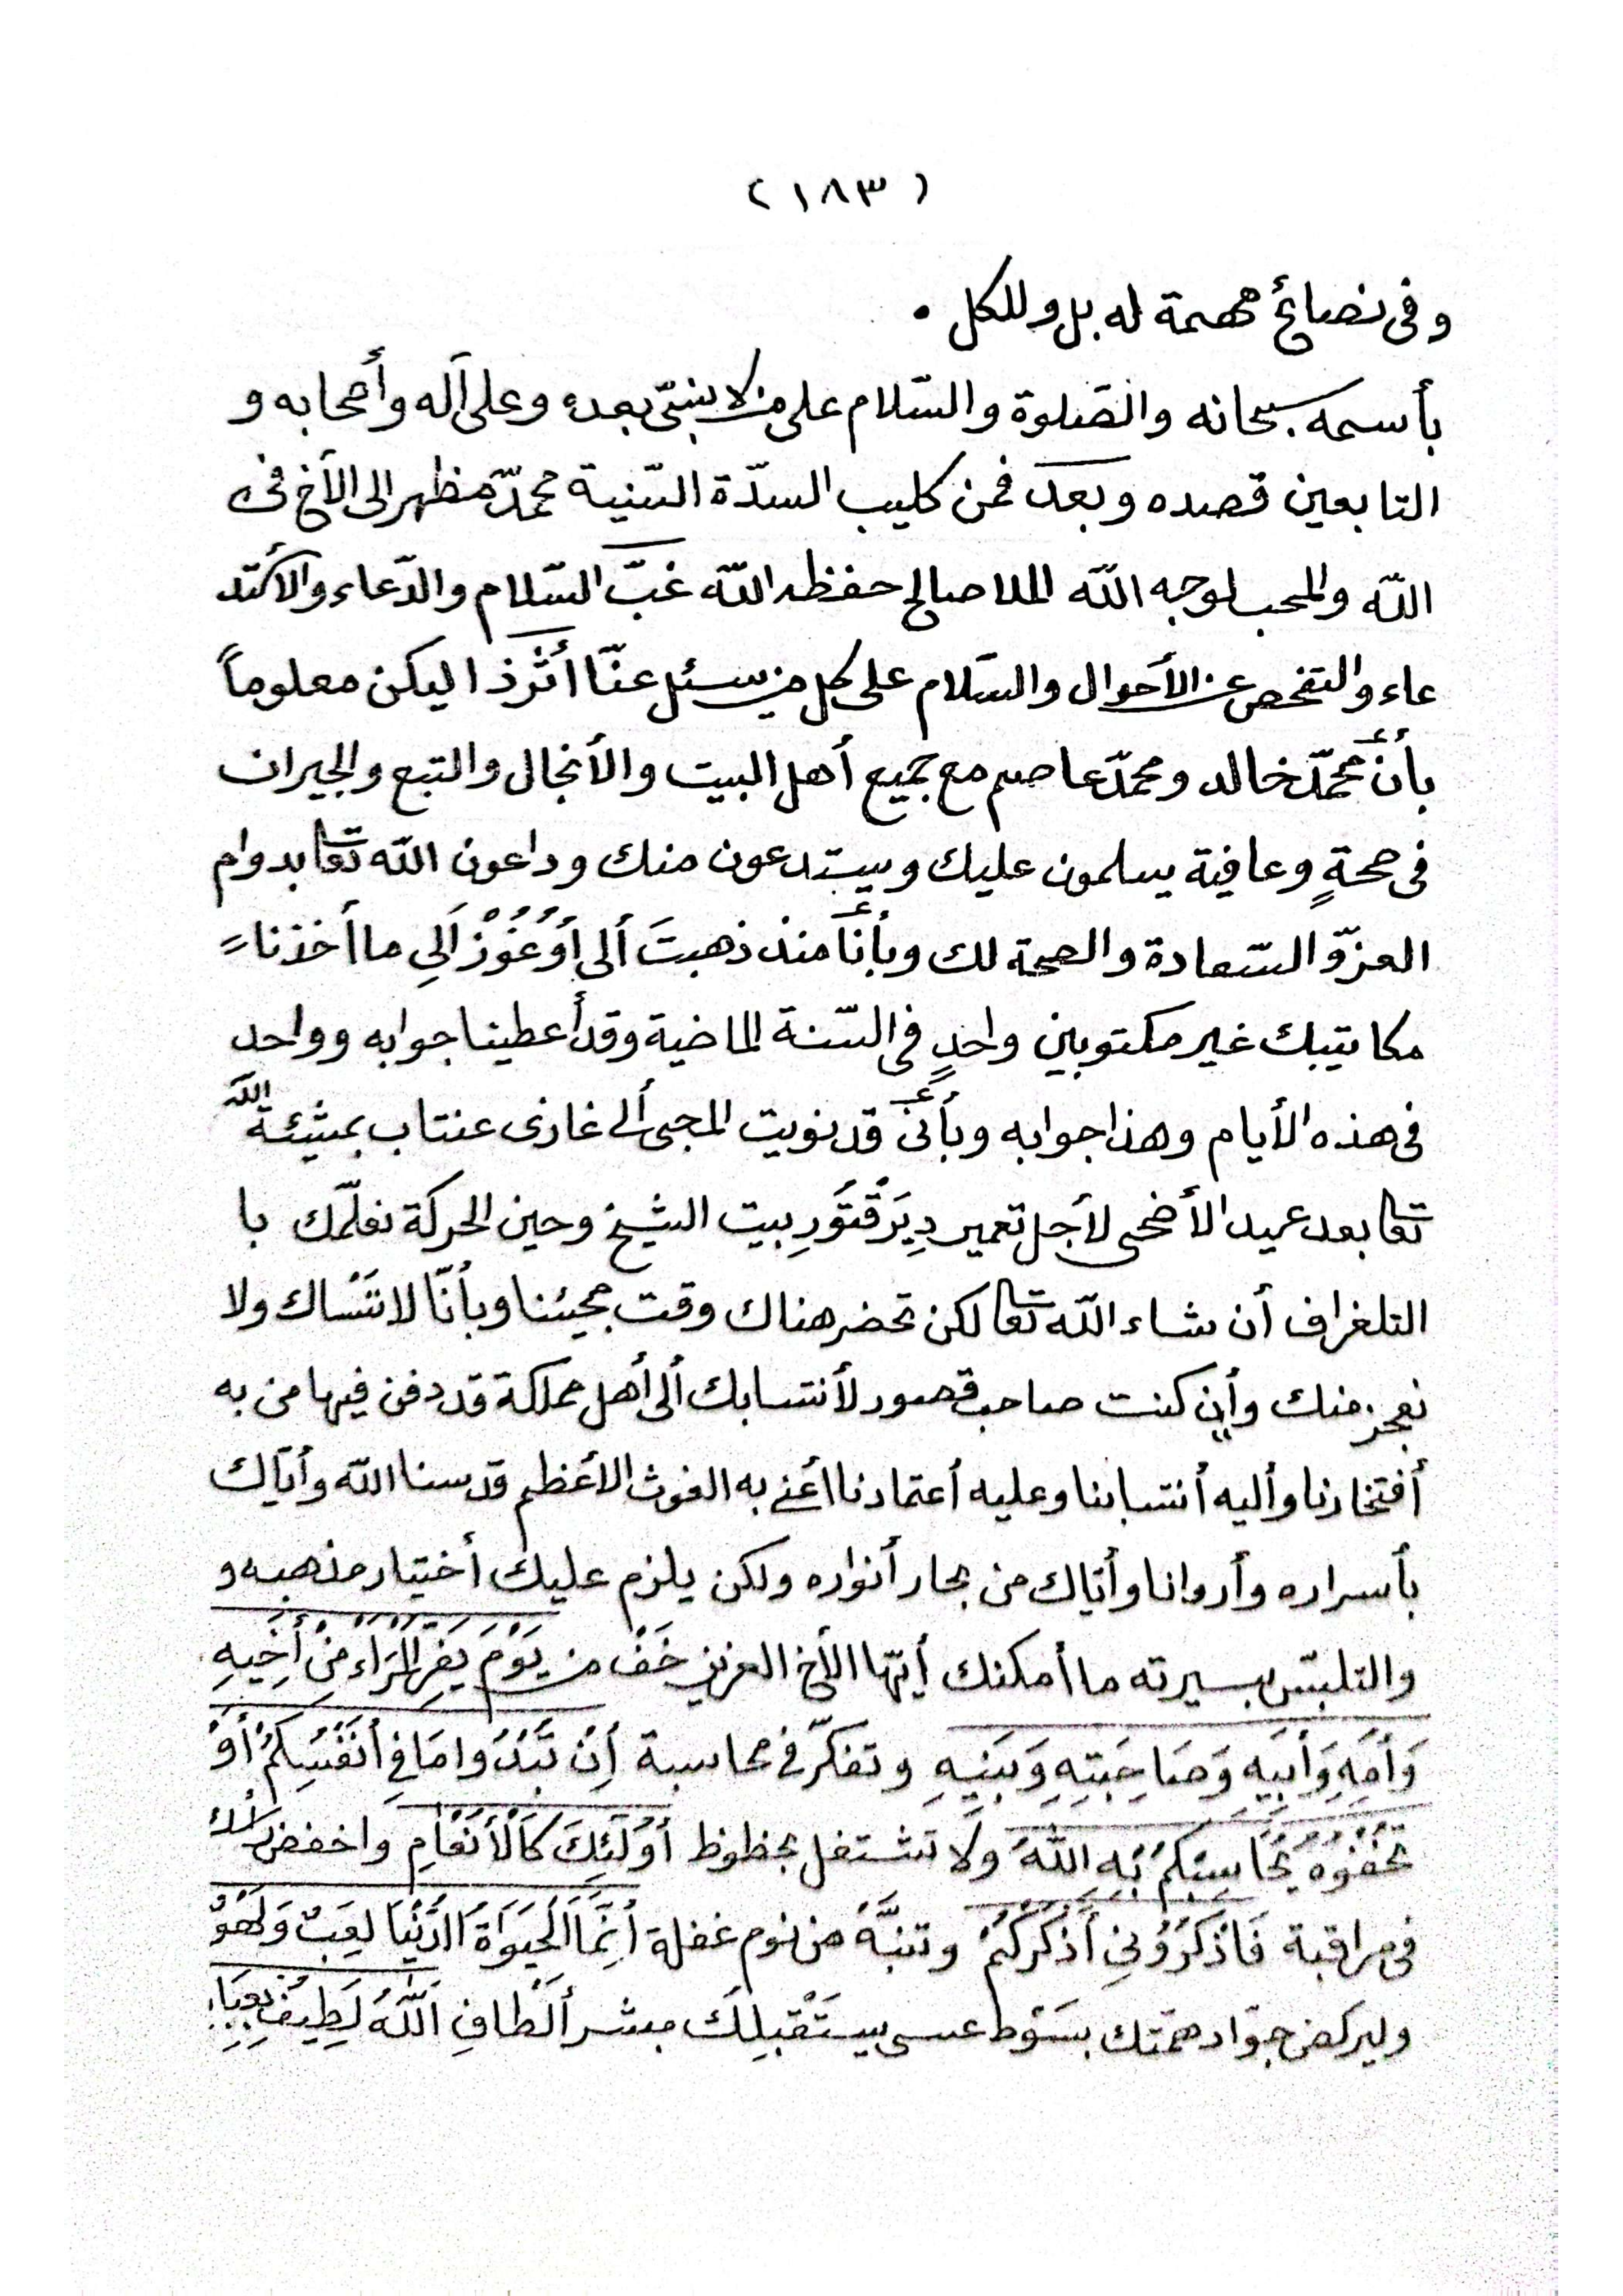 (١٨٣)
وفى نصائح مهمة له بل وللكل .
بأسمه سبحانه والصّلوة والسّلام على من لا نبىّ بعده وعلى آله وأصحابه و
التابعين قصده وبعد فمن كليب السدّة السّنية محمّد مظهر الى الآخ فى
اللّه والمحب لوجه اللّه الملا صالح حفظه اللّه غبّ السّلام والدّعاء والأستد
عاء والتفحص عن الأحوال والسّلام على كل من يسئل عنّا أثرذا ليكن معلوماً
بأنّ محمّد خالد ومحمّد عاصم مع جميع أهل البيت والأنجال والتبع والجيران
فى صحةٍ وعافية يسلمون عليك ويستدعون منك وداعون اللّه تعا بدوام
العزّ والسّعادة والصحة لك وبأنّا منذ ذهبتَ ألى أوُغُوُزْ اَلِى ما أخذنا
مكاتيبك غير مكتوبين واحدٍ فى السّنة الماضية وقد أعطينا جوابه وواحد
فى هذه الأيام وهذا جوابه وبأنى قد نويت المجىء ألى غازى عنتاب بمشيئة اللّه
تعا بعد عيد الأضحى لأجل تعمير دِيَرْقَتَورِ بيت الشيخ وحين الحركة نعلّمك با
التلغراف أن شاء اللّه تعا لكن تحضر هناك وقت مجيئنا وبأنّا لا ننْساك ولا
نعجز منك وأن كنت صاحب قصور لأنتسابك ألى أهل مملكة قد دفن فيها من به
أفتخارنا وأليه أنتسابنا وعليه أعتمادنا أعنى به الغوث الأعظم قدسنا اللّه وأيّاك
بأسراره وأروانا وأيّاك من بحار أنواره ولكن يلزم عليك أختيار مذهبه و
والتلبّس بسيرته ما أمكنك أيّها الأخ العزيز خَفْ من يَوْمَ يَفِرُّ الْمَرْاءُ مِنْ أَخِيْهِ
وَأُمِّهِ وَأَبِيْهِ وَصَاحِبَتِهِ وَبَنِيْهِ وتفكّر فى محاسبة أِنْ تُبْدُوا مَا فِى أَنْفُسِكُمْ أَوْ
تُخْفُوْهُ يُحَاسِبْكُمْ بِهِ اللّهُ ولا تشتغل بحظوظ أُوْلَئِكَ كَالْأَنْعَامِ واخفض رأسك
فى مراقبة فَاذْكُرُوْنِى أَذْكُرْكُمْ وتنبَّهْ من نوم غفلة أِنَّمَا الْحَيَوَاةُ الدُّنْيَا لَعِبٌ وَلَهْوٌ
وليركض جوَاد همّتك بسَوْط عسى يستَقْبِلَكَ مبشر ألْطَافِ اَللّهُ لَطِيْفٌ بِعِبَادِهِ